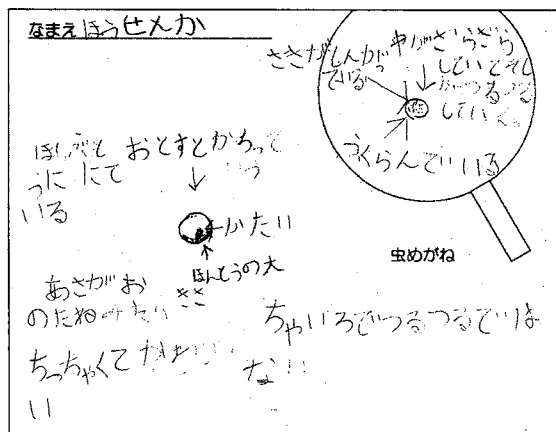 なまえ ほうせんか
さきがとんがっ
ている
中がざらざら
していてそと
がつるつる
している
ふくらんでいる
虫めがね
ほし
うに にて
いる
おとすとかちって
いう
かたい
ほんとうの大
きさ
あさがお
のたねみたい
ちっちゃくて かわいい
い
ちゃいろでつるつるでは
ない